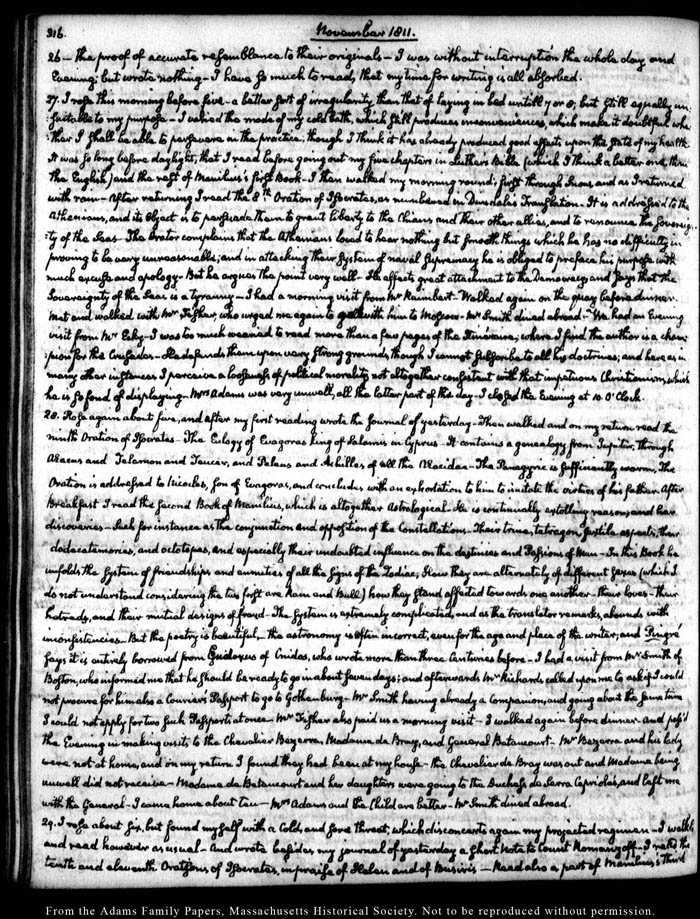 316.
November 1811.
26 — the proof of accurate resemblance to their originals — I was without interruption the whole day and
Evening; but wrote nothing — I have so much to read, that my time for writing is all absorbed.
27. I rose this morning before five — a better sort of irregularity, than that of laying in bed untill 7 or 8; but still equally un-
:suitable to my purpose — I varied the mode of my cold bath, which still produces inconveniences, which make it doubtful whe-
:ther I shall be able to persevere in the practice, though I think it has already produced good effects upon the state of my health.
It was so long before daylight, that I read before going out my five chapters in Luthers Bible (which I think a better one, than
the English) and the rest of Manilius's first Book — I then walked my morning round; first through snow, and as I returned
with rain — After returning I read the 8th Oration of Isocrates, as numbered in Dinsdale's Translation — It is addressed to the
Athenians, and its object is to persuade them to grant liberty to the Chians and their other allies, and to renounce the Sovereign-
:ty of the Seas — The Orator complains that the Athenians loved to hear nothing but smooth things which he has no difficulty in
proving to be very unreasonable; and in attacking their system of naval supremacy he is obliged to preface his purpose with
much excuse and apology — But he argues the point very well — He affects great attachment to the Democracy and says that the
Sovereignty of the Seas is a tyranny — I had a morning visit from Mr Raimbert — Walked again on the quay before dinner.
Met and walked with Mr Fisher, who urged me again to go with him to Moscow — Mr Smith dined abroad — We had an Evening
visit from Mr Eeky — I was too much wearied to read more than a few pages of the Itinéraire, where I find the author is a cham-
:pion for the Crusades — He defends them upon very strong grounds, though I cannot subscribe to all his doctrines; and here as in
many other instances I perceive a looseness of political morality, not altogether consistent with that impetuous Christianism, which
he is so fond of displaying. Mrs Adams was very unwell, all the latter part of the day — I closed the Evening at 10 O'Clock.
28. Rose again about five, and after my first reading wrote the Journal of yesterday — Then walked and on my return read the
ninth Oration of Isocrates — The Eulogy of Evagoras king of Salamis in Cyprus — It contains a genealogy from Jupiter, through
Aeacus and Telamon and Teucer, and Peleus and Achilles of all the Aeacidae — The Panegyric is sufficiently warm. The
Oration is addressed to Nicocles, son of Evagoras, and concludes with an exhortation to him to imitate the virtues of his father. After
Breakfast I read the second Book of Manilius, which is altogether Astrological — He is continually extolling reason, and her
discoveries — Such for instance as the conjunction and opposition of the Constellations — Their trine, tetragon, sextile aspects, their
dodecatemories, and octotopos, and especially their undoubted influence on the destinies and Passions of Man — In this Book he
unfolds the System of friendships and enmities of all the Signs of the Zodiac; How they are alternately of different Sexes (which I
do not understand considering the two first are Ram and Bull) how they stand affected towards one another — their loves — their
hatreds, and their mutual designs of fraud — The System is extremely complicated, and as the translator remarks, abounds with
inconsistencies — But the poetry is beautiful — the astronomy is often incorrect, even for the age and place of the writer; and Pingré
says it is entirely borrowed from Eudoxus of Cnidos, who wrote more than three Centuries before — I had a visit from Mr Smith of
Boston, who informed me that he should be ready to go in about seven days; and afterwards Mr Richards called upon me to ask if I could
not procure for him also a Courier's Passport to go to Gothenburg — Mr Smith having already a companion, and going about the same time
I could not apply for two such Passports at once — Mr Fisher also paid us a morning visit — I walked again before dinner — and pass'd
the Evening in making visits to the Chevalier Bezerra, Madame de Bray, and General Betancourt — Mr Bezerra and his lady
were not at home, and on my return I found they had been at my house — the Chevalier de Bray was out and Madame being
unwell did not receive — Madame de Betancourt and her daughters were going to the Duchess de Serra Capriola's, and left me
with the General — I came home about ten — Mrs Adams and the Child are better — Mr Smith dined abroad.
29. I rose about six, but found myself with a Cold, and sore throat, which disconcerts again my projected regimen — I walk'd
and read however as usual — And wrote besides, my journal of yesterday a short Note to Count Romanzoff — I read the
tenth and eleventh Orations of Isocrates, in praise of Helen and of Busiris — Read also a part of Manilius's third
From the Adams Family Papers, Massachusetts Historical Society. Not to be reproduced without permission.